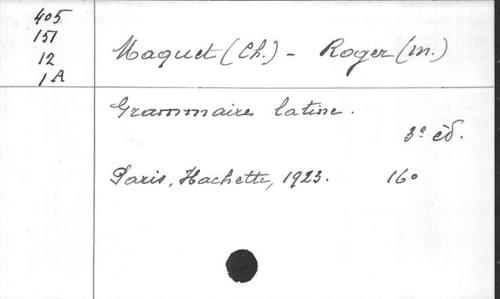 405
151
12
1A
Maquet (Ch.) - Roger (M.)
Grammaire latine.
3e éd.
Paris, Hachette, 1923. 16°